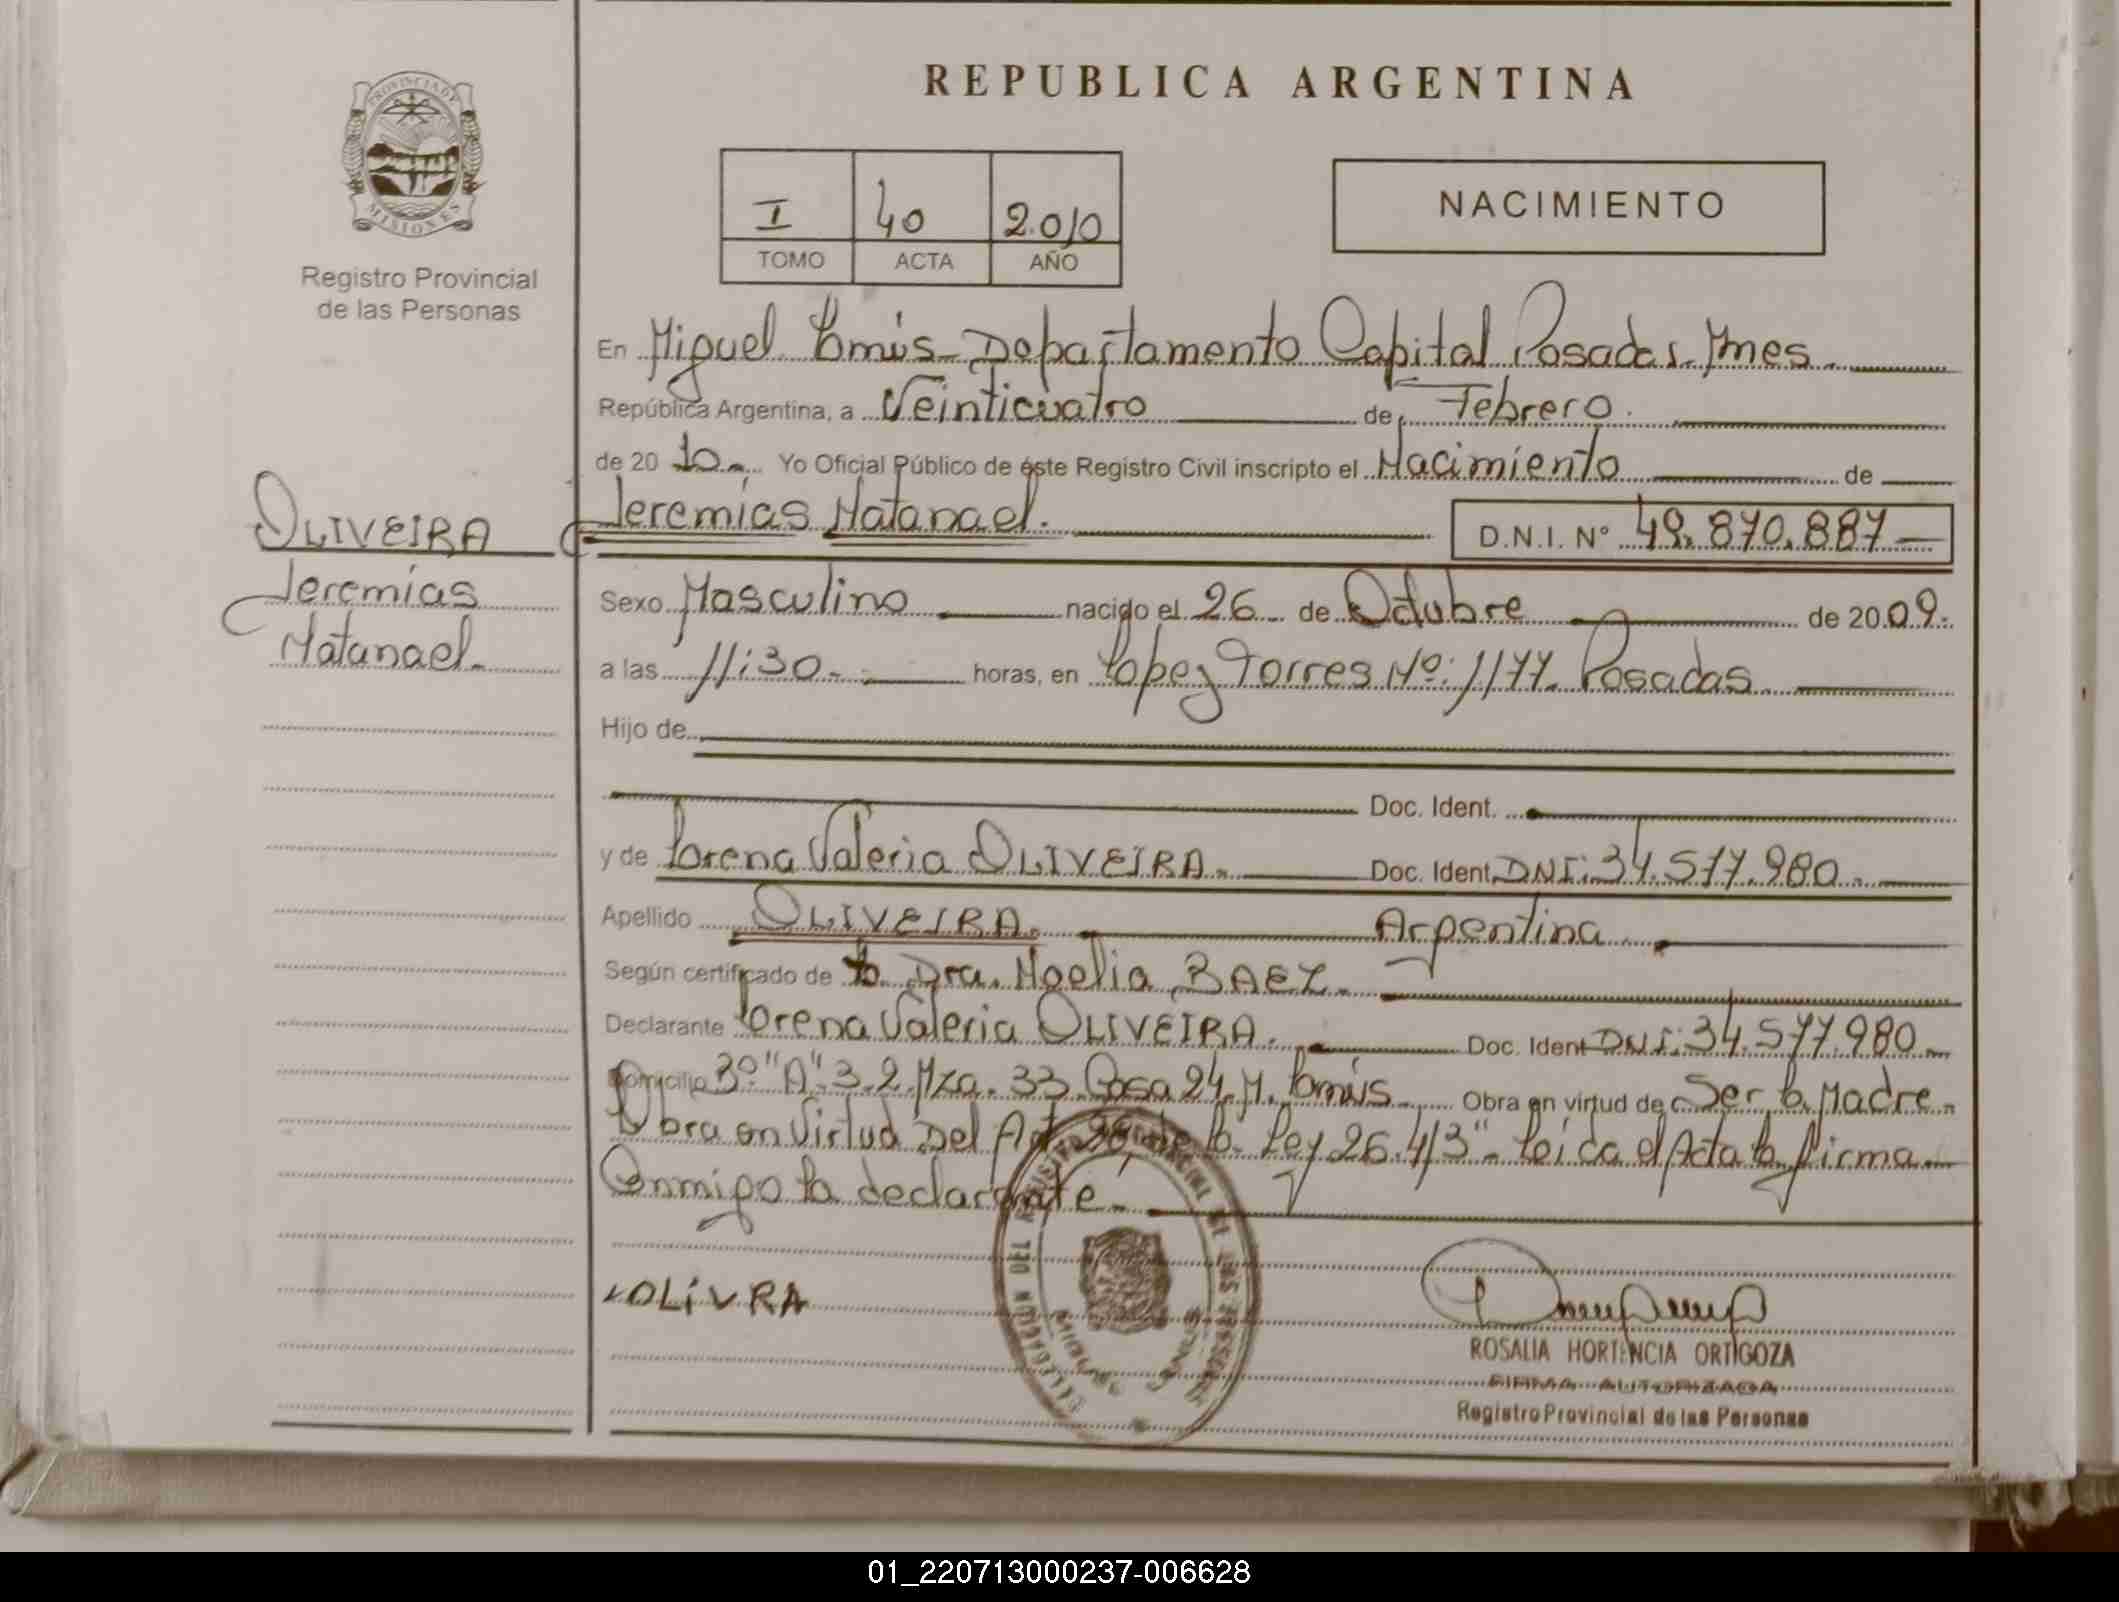 PROVINCIA DE
MISIONES
Registro Provincial
de las Personas
OLIVEIRA
Jeremías
Natanael.
REPUBLICA ARGENTINA
I 40 2.010
TOMO ACTA AÑO
NACIMIENTO
En Miguel Lanús Departamento Capital Posadas. Mnes.
República Argentina, a Veinticuatro de Febrero.
de 20 10. Yo Oficial Público de éste Registro Civil inscripto el Nacimiento de
Jeremías Natanael. D.N.I. N° 49.870.887
Sexo Masculino nacido el 26 de Octubre de 20 09.
a las 11:30. horas, en Lopez Torres Nº: 1177. Posadas
Hijo de
Doc. Ident.
y de Lorena Valeria OLIVEIRA. Doc. Ident. DNI: 34.577.980.
Apellido OLIVEIRA. Argentina
Según certificado de la Dra. Noelia BAEZ.
Declarante Lorena Valeria OLIVEIRA. Doc. Ident DNI: 34.577.980
Domicilio 3º "A" 3.2. Mza. 33 Casa 24. M. Lanús Obra en virtud de Ser la Madre.
Obra en Virtud Del Art. de la Ley 26.413". Leída el Acta la firma
Conmigo la declarante.
OLiVRA
ROSALIA HORTENCIA ORTIGOZA
FIRMA AUTORIZADA
Registro Provincial de las Personas
01_220713000237-006628